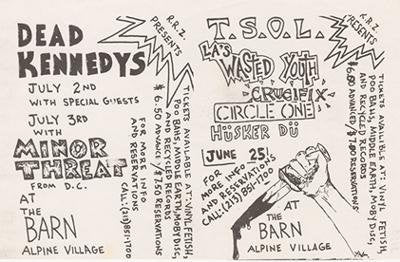 DEAD
KENNEDYS
R.R.Z.
PRESENTS
JULY 2ND
WITH SPECIAL GUESTS
JULY 3RD
WITH
MINOR
THREAT
FROM D.C.
AT
THE
BARN
ALPINE VILLAGE
TICKETS AVAILABLE AT: VINYL FETISH,
POO BAHS, MIDDLE EARTH, MOBY DISC,
AND RECYCLED RECORDS
$6.50 ADVANCE/$7.50 RESERVATIONS
FOR MORE INFO
AND RESERVATIONS
CALL: (213) 851-1700
T.S.O.L.
R.R.Z.
PRESENTS
LA'S WASTED YOUTH
CRUCIFIX
CIRCLE ONE
HÜSKER DÜ
JUNE 25!
FOR
MORE INFO
AND RESERVATIONS
CALL: (213) 851-1700
TICKETS AVAILIBLE AT: VINYL FETISH,
POO BAHS, MIDDLE EARTH, MOBY DISC,
AND RECYCLED RECORDS
$6.00 ADVANCED/$7.00 RESERVATIONS
AT
THE
BARN
ALPINE VILLAGE